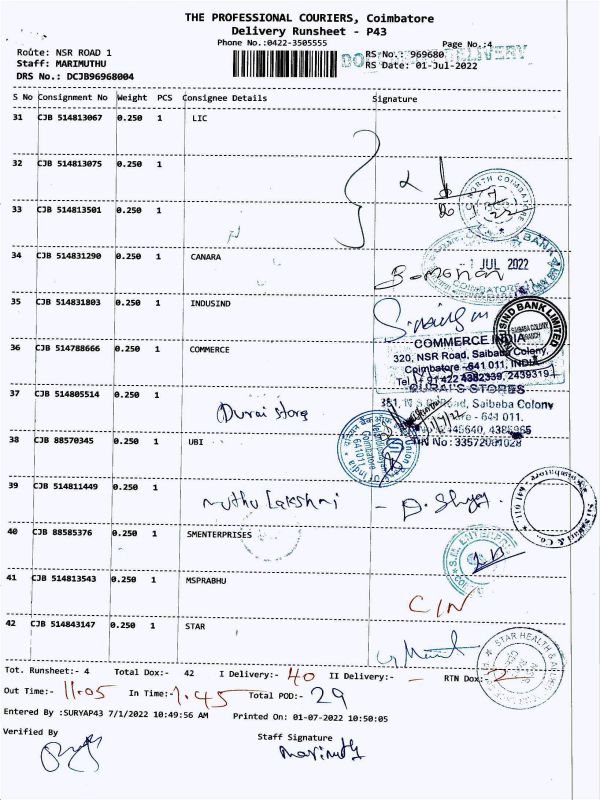 THE PROFESSIONAL COURIERS, Coimbatore
Delivery Runsheet - P43
Phone No.:0422-3505555
Page No.:4
Route: NSR ROAD 1
RS No.: 969680
Staff: MARIMUTHU
RS Date: 01-Jul-2022
DRS No.: DCJB96968004
S No Consignment No Weight PCS Consignee Details Signature
31 CJB 514813067 0.250 1 LIC
32 CJB 514813075 0.250 1
NORTH COIMBATORE
33 CJB 514813501 0.250 1
34 CJB 514831290 0.250 1 CANARA
BANK
1 JUL 2022
B-mohan
COIMBATORE-11
35 CJB 514831803 0.250 1 INDUSIND
INDUSIND BANK LIMITED
SAIBABA COLONY
BRANCH
36 CJB 514788666 0.250 1 COMMERCE
COMMERCE INDIA
320, NSR Road, Saibaba Colony,
Coimbatore -641 011, INDIA
Tel : + 91 422 4382339, 2439319
37 CJB 514805514 0.250 1
Durai store
DURAI'S STORES
Saibaba Colony
- 641 011.
38 CJB 88570345 0.250 1 UBI
Union Bank of India
Coimbatore
641011
39 CJB 514811449 0.250 1
muthu Lakshmi -
Sri Sakthi & Co.
Coimbatore - 641 011
40 CJB 88585376 0.250 1 SMENTERPRISES
S.M. ENTERPRISES
41 CJB 514813543 0.250 1 MSPRABHU
C/N
42 CJB 514843147 0.250 1 STAR
STAR HEALTH & ALLIED
Tot. Runsheet:- 4 Total Dox:- 42 I Delivery:- 40 II Delivery:- - RTN Dox:- 2
Out Time:- 11.05 In Time:- 1.45 Total POD:- 29
Entered By :SURYAP43 7/1/2022 10:49:56 AM Printed On: 01-07-2022 10:50:05
Verified By
Staff Signature